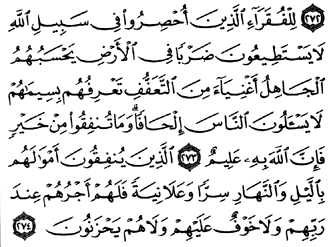 ٢٧٢ لِلۡفُقَرَآءِ ٱلَّذِينَ أُحۡصِرُواْ فِي سَبِيلِ ٱللَّهِ
لَا يَسۡتَطِيعُونَ ضَرۡبٗا فِي ٱلۡأَرۡضِ يَحۡسَبُهُمُ
ٱلۡجَاهِلُ أَغۡنِيَآءَ مِنَ ٱلتَّعَفُّفِ تَعۡرِفُهُم بِسِيمَٰهُمۡ
لَا يَسۡـَٔلُونَ ٱلنَّاسَ إِلۡحَافٗاۗ وَمَا تُنفِقُواْ مِنۡ خَيۡرٖ
فَإِنَّ ٱللَّهَ بِهِۦ عَلِيمٌ ٢٧٣ ٱلَّذِينَ يُنفِقُونَ أَمۡوَٰلَهُم
بِٱلَّيۡلِ وَٱلنَّهَارِ سِرّٗا وَعَلَانِيَةٗ فَلَهُمۡ أَجۡرُهُمۡ عِندَ
رَبِّهِمۡ وَلَا خَوۡفٌ عَلَيۡهِمۡ وَلَا هُمۡ يَحۡزَنُونَ ٢٧٤